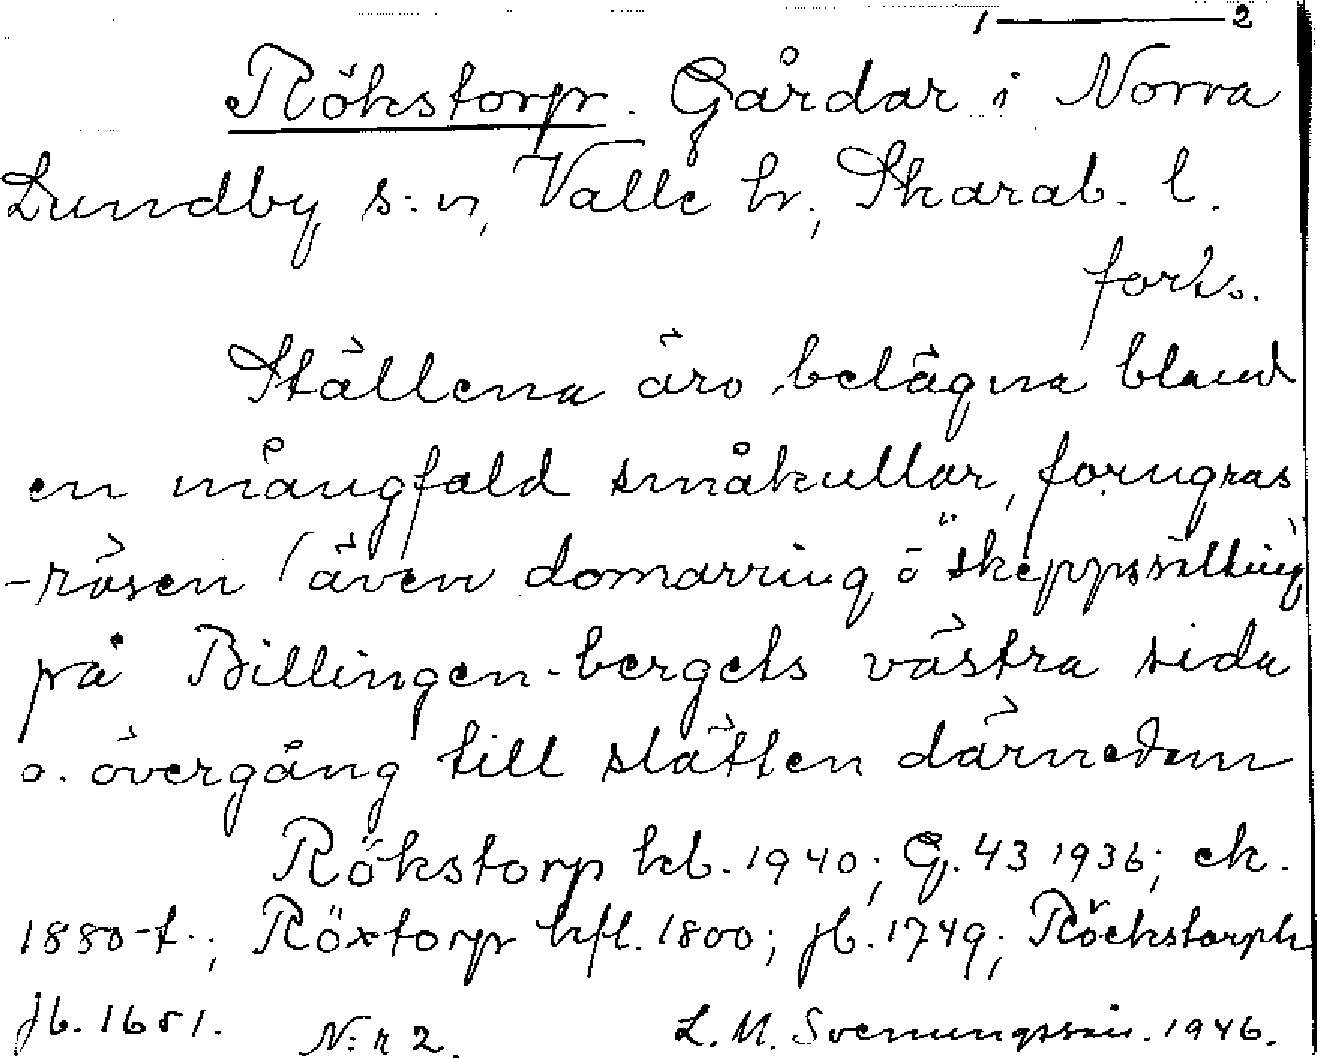 1 ——— 2
Rökstorp. Gårdar i Norra
Lundby s:n, Valle hr., Skarab. l.
forts.
Ställena äro belägna bland
en mångfald småkullar, forngrav
-rösen (även domarring o "skeppssättning"
på Billingen-bergets västra sida
o. övergång till slätten därnedom
Rökstorp kb. 1940; G. 43 1936; ek.
1880-t.; Röxtorp kfl. 1800; jb. 1749; Röckstorph
jb. 1651. N:r 2. L. M. Svenungsson. 1946.